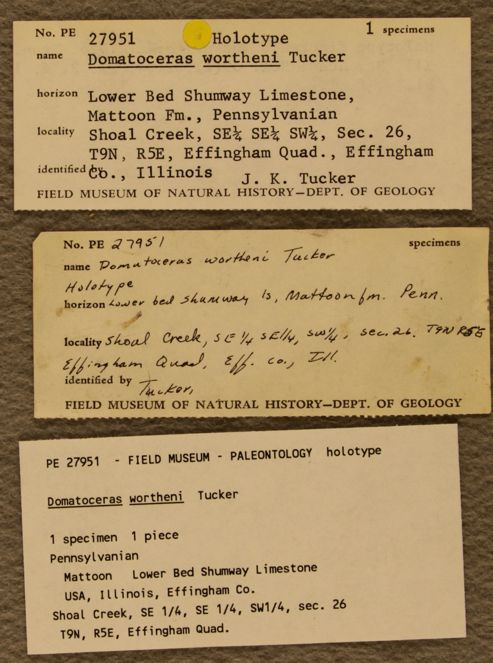 No. PE 27951 Holotype 1 specimens
name Domatoceras wortheni Tucker
horizon Lower Bed Shumway Limestone,
Mattoon Fm., Pennsylvanian
locality Shoal Creek, SE¼ SE¼ SW¼, Sec. 26,
T9N, R5E, Effingham Quad., Effingham
identified by Co., Illinois J. K. Tucker
FIELD MUSEUM OF NATURAL HISTORY—DEPT. OF GEOLOGY
No. PE 27951 specimens
name Domatoceras wortheni Tucker
Holotype
horizon Lower bed Shumway ls, Mattoon fm. Penn.
locality Shoal Creek, SE 1/4 SE1/4, SW1/4, sec. 26. T9N R5E
Effingham Quad, Eff. co., Ill.
identified by Tucker,
FIELD MUSEUM OF NATURAL HISTORY—DEPT. OF GEOLOGY
PE 27951 - FIELD MUSEUM - PALEONTOLOGY holotype
Domatoceras wortheni Tucker
1 specimen 1 piece
Pennsylvanian
Mattoon Lower Bed Shumway Limestone
USA, Illinois, Effingham Co.
Shoal Creek, SE 1/4, SE 1/4, SW1/4, sec. 26
T9N, R5E, Effingham Quad.